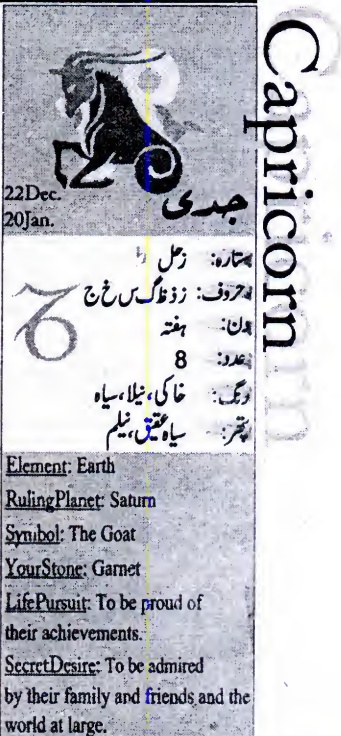 Capricorn
22Dec.
20Jan.
جدی
ستارہ: زحل
حروف: ز ذ ظ گ س خ ج
دن: ہفتہ
عدد: 8
رنگ: خاکی، نیلا، سیاہ
پتھر: سیاہ عقیق، نیلم
Element: Earth
RulingPlanet: Saturn
Symbol: The Goat
YourStone: Garnet
LifePursuit: To be proud of
their achievements.
SecretDesire: To be admired
by their family and friends and the
world at large.